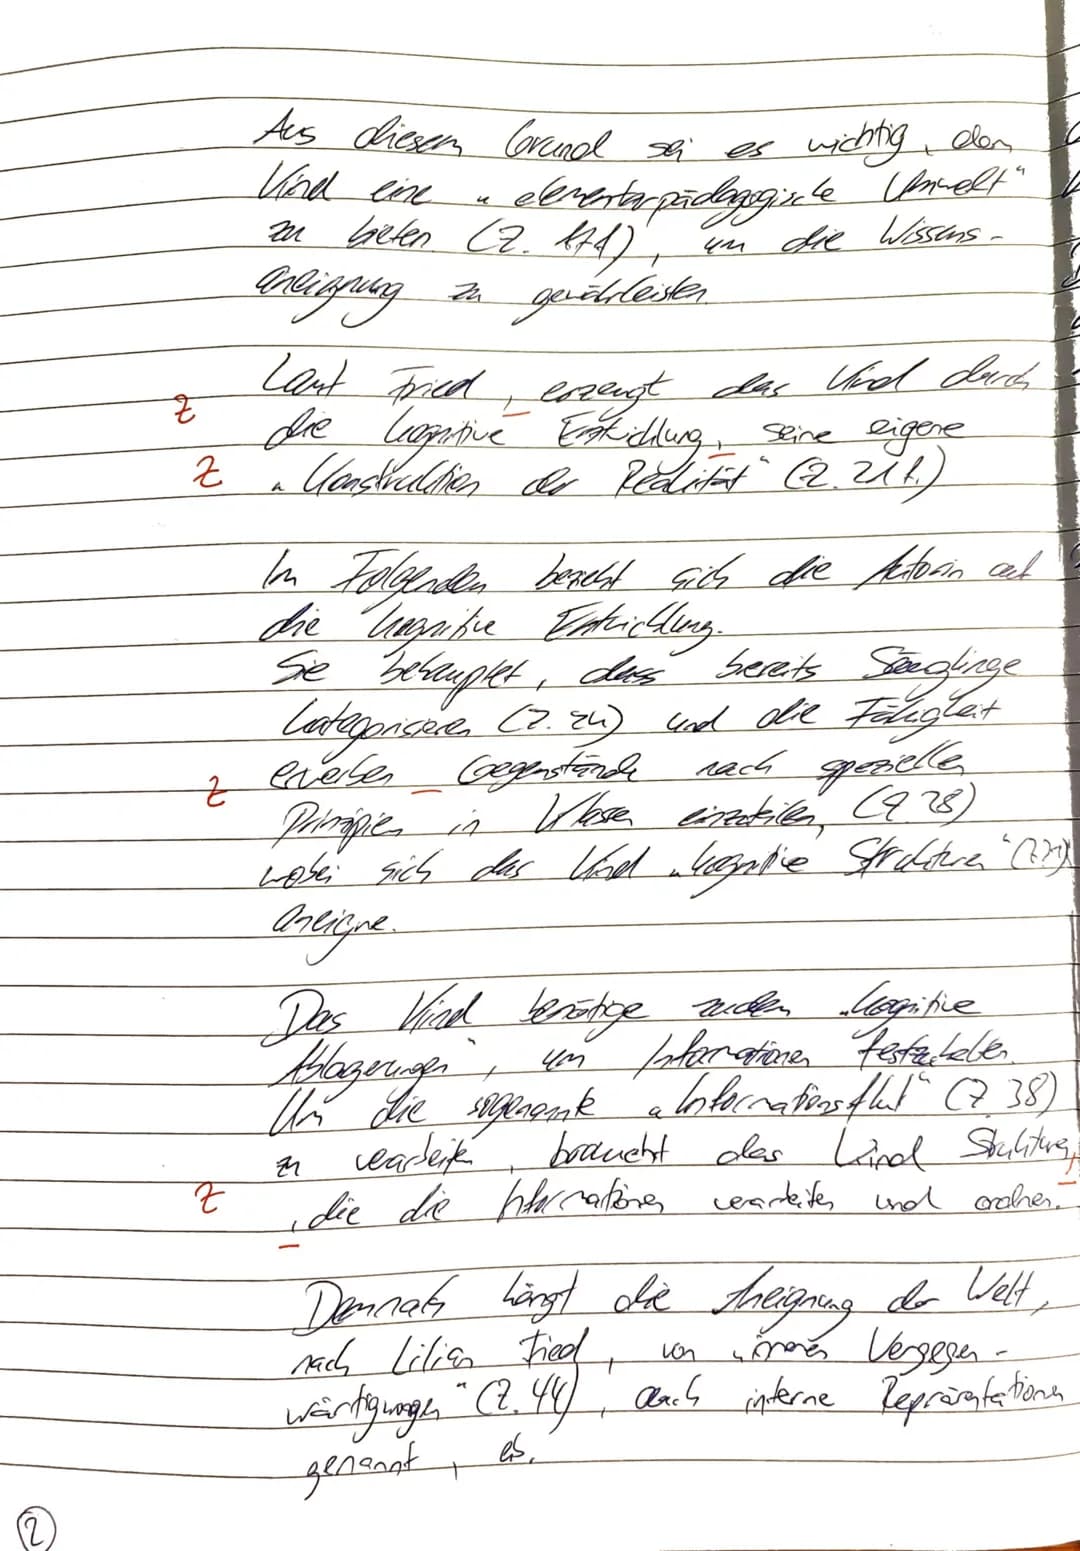 Aus diesem Grund sei es wichtig, dem
Kind eine „elementarpädagogische Umwelt“
zu bieten (Z. 17f), um die Wissens-
aneignung zu gewährleisten
Laut Fried, erzeugt das Kind durch
Z
die kognitive Entwicklung, seine eigene
Z
„Konstruktion der Realität“ (Z. 21f.)
Im Folgenden bezieht sich die Autorin auf
die kognitive Entwicklung.
Sie behauptet, dass bereits Säuglinge
kategorisieren (Z. 24) und die Fähigkeit
Z
erwerben Gegenstände nach speziellen
Prinzipien in Klassen einzuteilen, (Z. 28)
wobei sich das Kind „kognitive Strukturen“
aneigne.
Das Kind benötige zudem „kognitive
Ablagerungen“, um Informationen festzuhalten.
Um die sogenannte „Informationsflut“ (Z. 38)
zu verarbeiten, braucht das Kind Strukturen,
Z
, die die Informationen verarbeiten und ordnen.
Demnach hängt die Aneignung der Welt,
nach Lilian Fried, von „inneren Vergegen-
wärtigungen“ (Z. 44), auch interne Repräsentationen
genannt, ab.
2